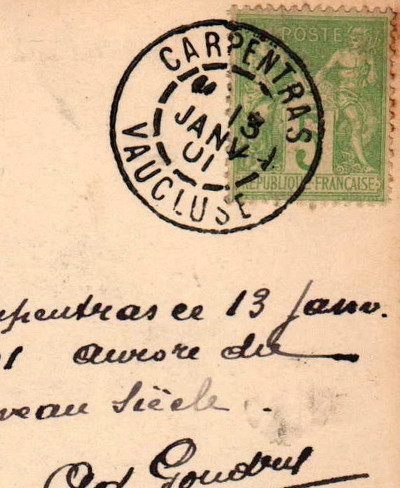 CARPENTRAS
13
JANV
01
VAUCLUSE
POSTE
5
RÉPUBLIQUE FRANÇAISE
rpentras ce 13 Janv.
1 aurore du
veau Siècle.